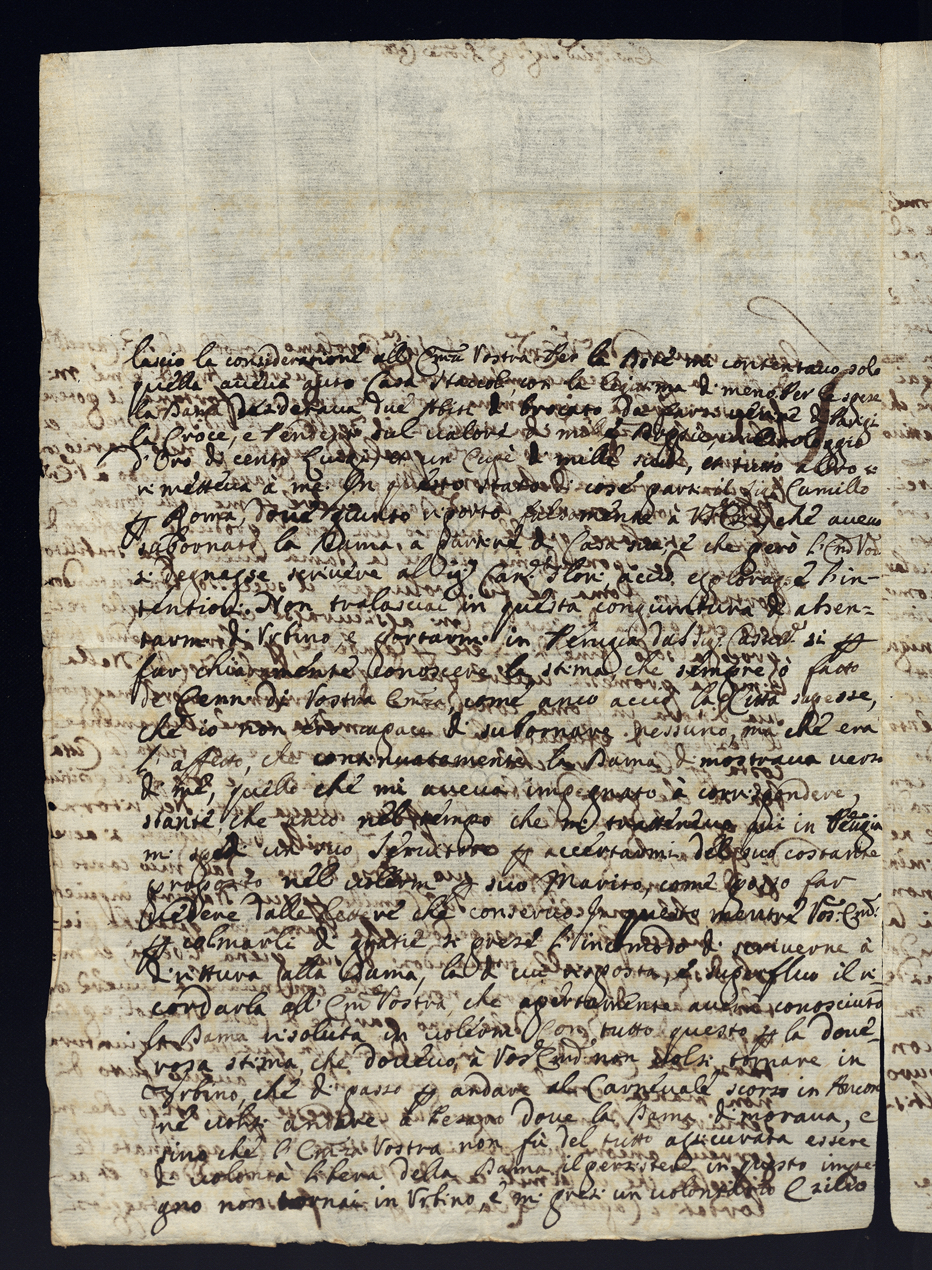 lascio la consideratione all'Em.za Vostra Per la dote mi contentavo solo
quella haveva Casa con la legitima di meno Per le spese
la Dama desiderava due Abiti di brocato da farsi
la Croce, e Pendenti dal valore di mille
d'Oro di cento et un di mille scudi, et tutto altro si
rimetteva à me. In questo stato di cose parti il Sig.r Camillo
p Roma, dove giunto riportò à V. che avevo
subornato la Dama, à partire di Casa sua, e che però l'Em. Vos.
si degnasse scrivere al Sig. acciò esplorasse l'in-
tentioni. Non tralasciai in questa congiuntura di absen-
tarmi di Urbino e portarmi in Perugia p
far chiaramente conoscere la stima, che sempre ò fatto
de Cenni di Vostra Em.za, come anco acciò la Città sapesse,
che io non ero capace di subornare nessuno, ma che era
l'affetto, che continuatamente la Dama di mostrava verso
di me, quello che mi aveva impegnato à corrispondere,
stante, che anco nel tempo che mi trattenevo qui in Perugia
mi spedì un suo Servitore p accertarmi del suo costante
proposito nel volermi p suo Marito, come posso far
vedere dalle Lettere che conservo. In questo mentre Vos. Em.
p colmarli di gratie si prese l'incommodo di scriverne à
drittura alla Dama, la di cui risposta, è superfluo il ri-
cordarla all'Em. Vostra, che apertamente averà conosciuto
la Dama risoluta in volermi. Con tutto questo p la dove-
rosa stima, che dovevo, à Vos. Em. non volsi tornare in
Urbino, che di passo p andare al Carnevale scorso in Ancona
ne volsi andare à Pesaro dove la Dama dimorava, e
sino che l'Em.za Vostra non fù del tutto assicurata essere
di volontà libera della Dama il persistere in questo impe-
gno non tornai in Urbino, e mi presi un volontario Esilio